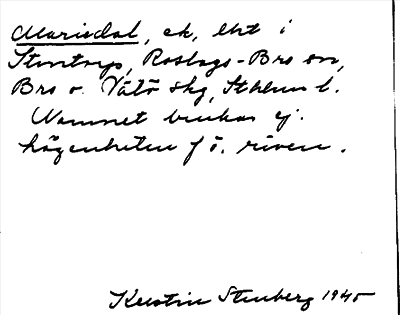 Mariedal, ek, lht i
Stentorp, Roslags-Bro sn,
Bro o. Vätö skg, Sthlms l.
Namnet brukas ej.
Lägenheten f ö. riven.
Kerstin Stenberg 1945